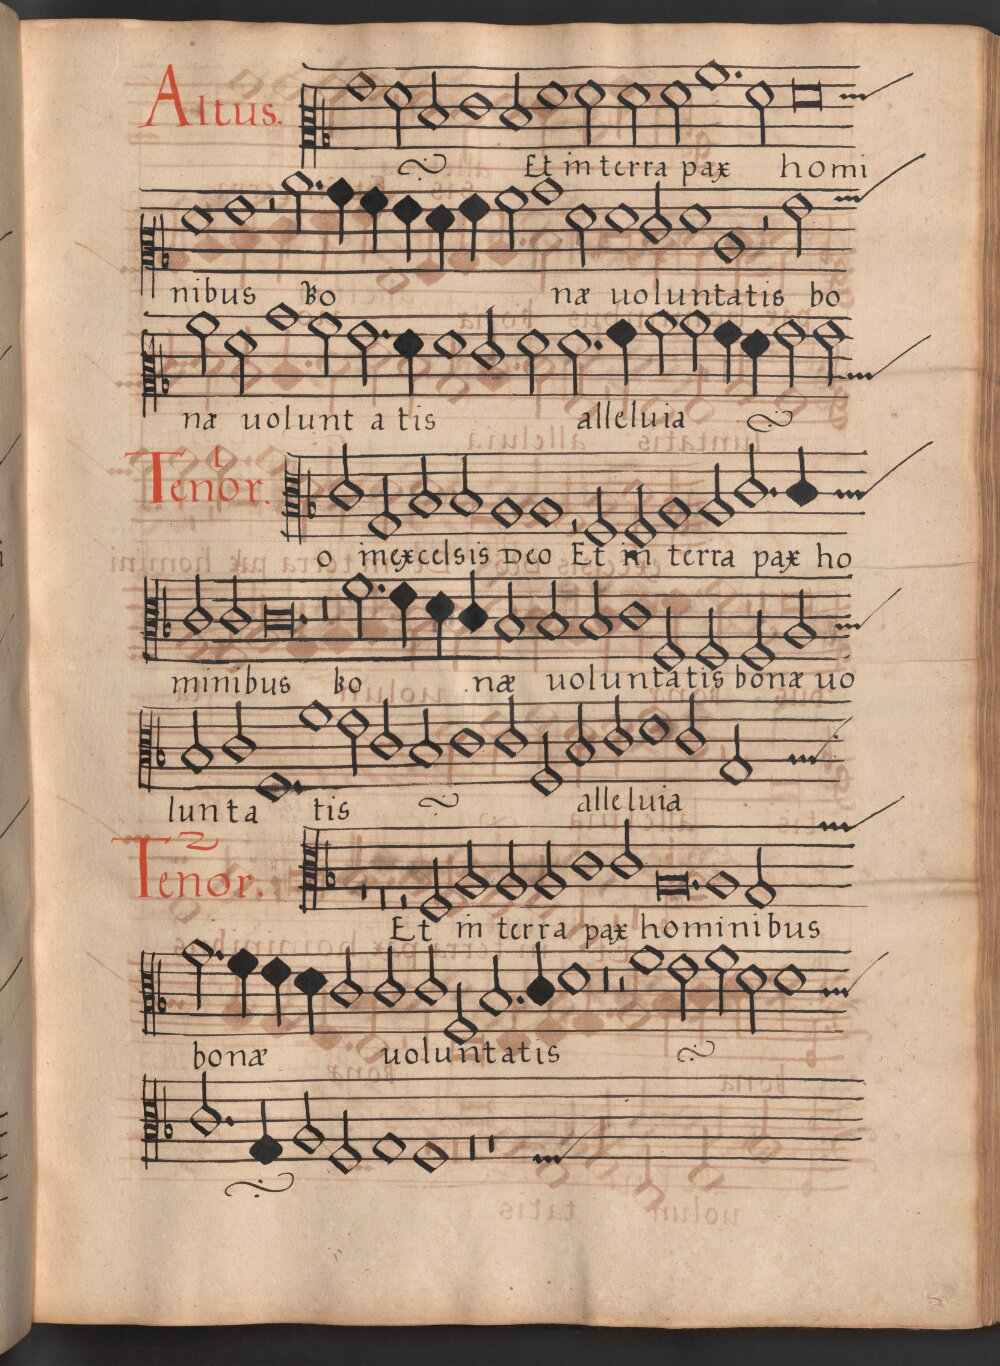 Altus.
Et in terra pax homi
nibus bo næ uoluntatis bo
næ uolunt a tis alleluia
Tenor. 1
o in excelsis Deo Et in terra pax ho
minibus bo næ uoluntatis bonæ uo
lunta tis alleluia
Tenor. 2
Et in terra pax hominibus
bonæ uoluntatis